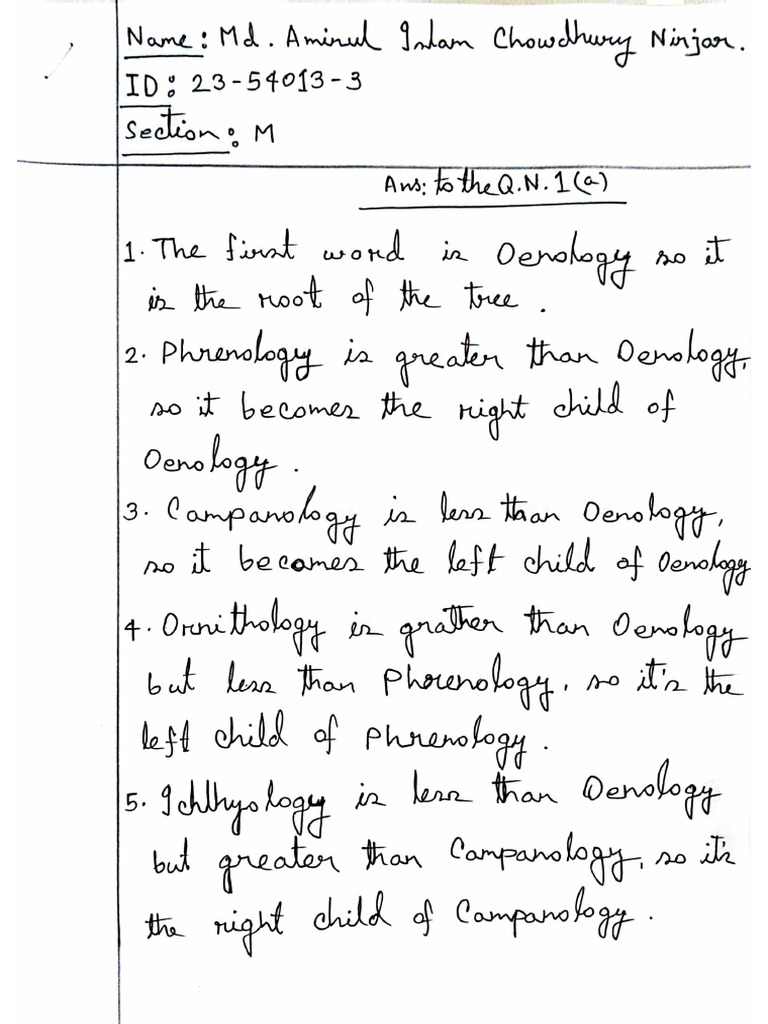 Name: Md. Aminul Islam Chowdhury Nirjar.
ID: 23-54013-3
Section: M
Ans: to the Q.N. 1(a)
1. The first word is Oenology so it
is the root of the tree.
2. Phrenology is greater than Oenology,
so it becomes the right child of
Oenology.
3. Campanology is less than Oenology,
so it becomes the left child of Oenology
4. Ornithology is grather than Oenology
but less than Phrenology, so it's the
left child of Phrenology.
5. Ichthyology is less than Oenology
but greater than Campanology, so it's
the right child of Campanology.